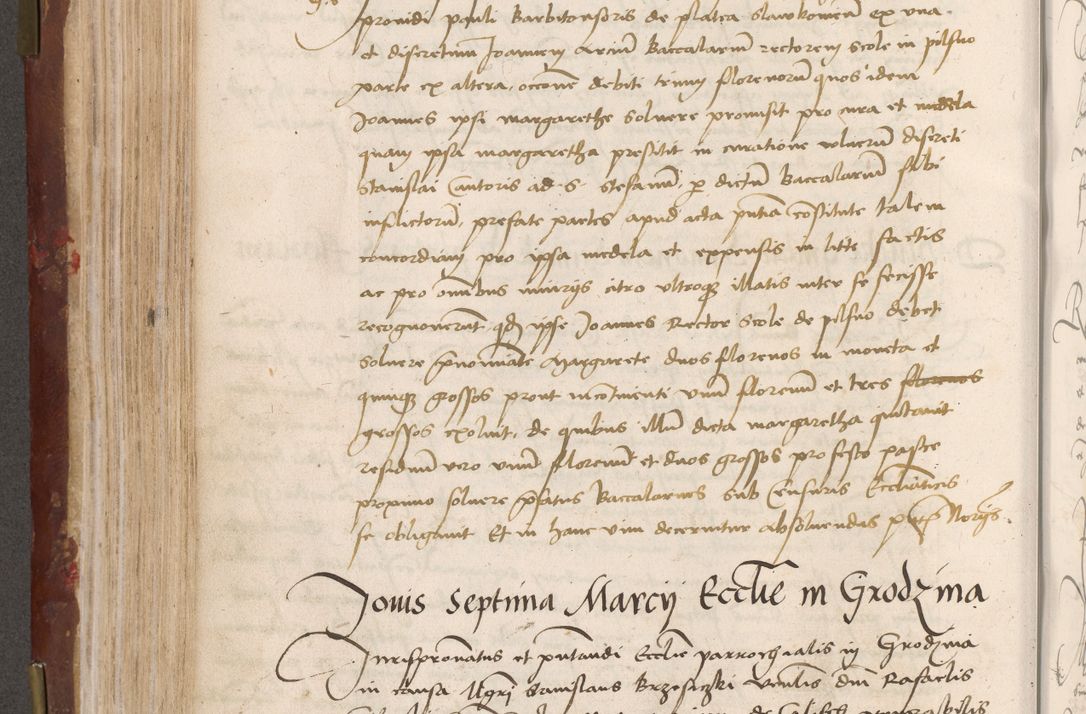 prouidi pauli barbitonsoris de platea slawkowien ex vna
et discretum Joannem arcium Baccalarium rectorem scole in pilsno
parte ex altera, occone debiti trium florenorum quos idem
Joannes ipsi margarethe soluere promisit pro cura et medela
quam ipsa margaretha prestitit in curatione vulnerum discreti
Stanislai Cantoris ad S. stefanum, per dictum Baccalarium sibi
inflictorum, prefate partes apud acta pntia constitute talem
concordiam pro ipsa medela et expensis in lite factis
ac pro omnibus iniurijs citro vltroque illatis inter se fecisse
recognouerunt, quod ipse Joannes Rector scole de pilsno debet
soluere prenominate Margarete duos florenos in moneta et
quinque grossos prout incontinenti vnum florenum et tres florenos
grossos exoluit, de quibus illum dicta margaretha quitauit
residuum vero vnum florenum et duos grossos pro festo pasce
proximo soluere prefatus Baccalareus sub Censuris Ecclesiasticis
se obligauit Et in hanc vim decernitur absoluendus Notarijs.
Jouis Septima Marcij Ecclie in Grodzina
Jurispronatus et pntandi Ecclie parrochialis in Grodzina
in causa Mgri Stanislaus Brzesiczki dni Rafaelis